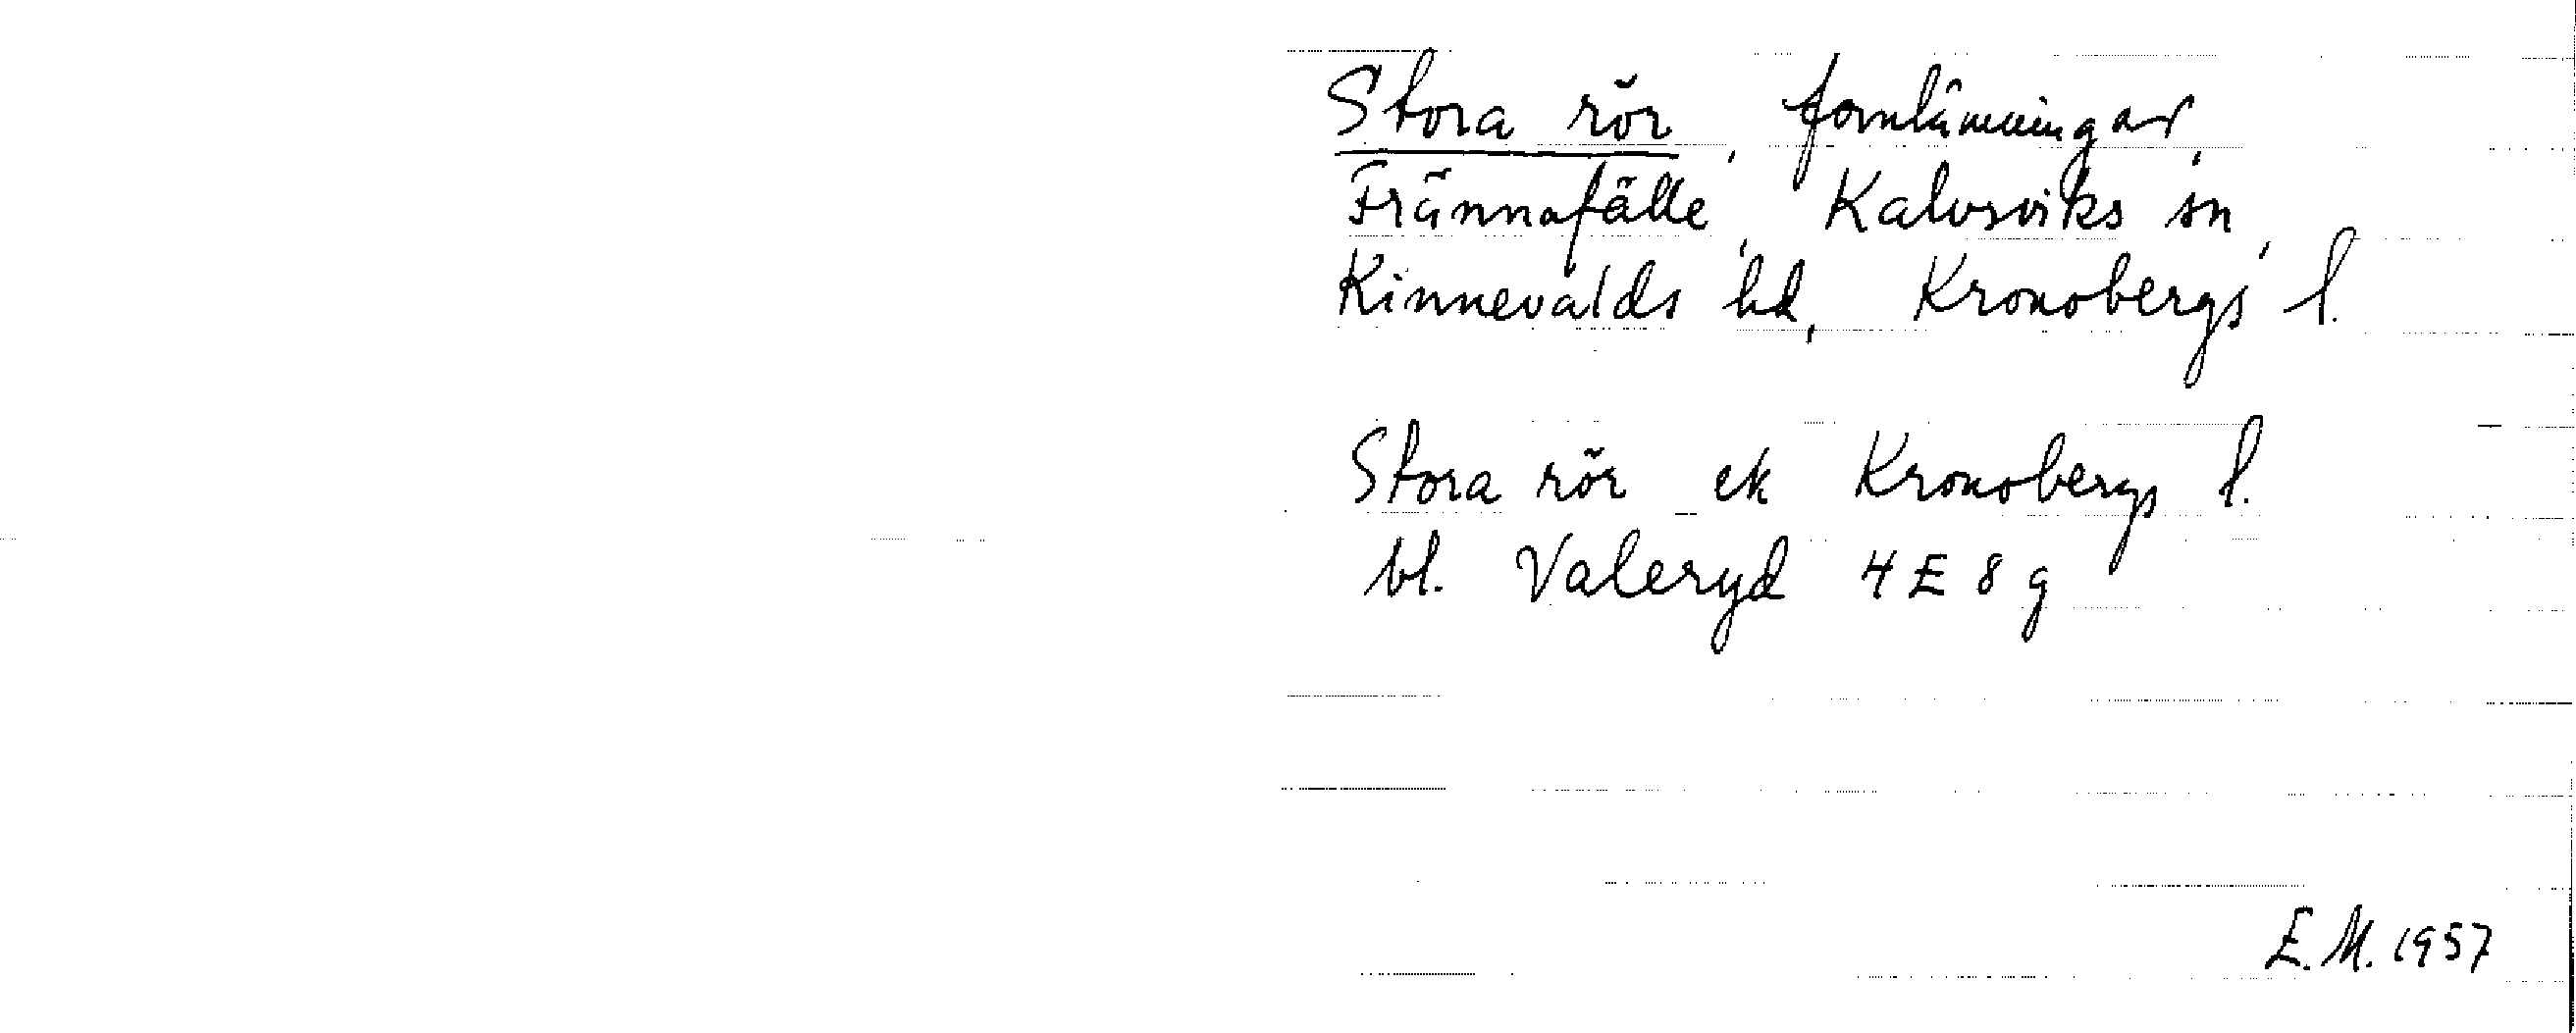 Stora rör, fornlämningar,
Frännafälle, Kalvsviks sn,
Kinnevalds hd, Kronobergs l.
Stora rör ek Kronobergs l.
bl. Valeryd 4E8g
E.M. 1957